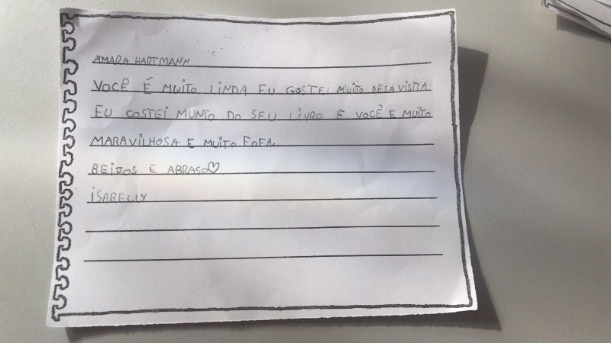 AMARA HARTMANN
VOCÊ É MUITO LINDA EU GOSTEI MUITO DESA VISITA
EU GOSTEI MUNTO DO SEU LIVRO E VOCÊ E MUITO
MARAVILHOSA E MUITO FOFA.
BEIJOS E ABRASO♡
ISABELLY